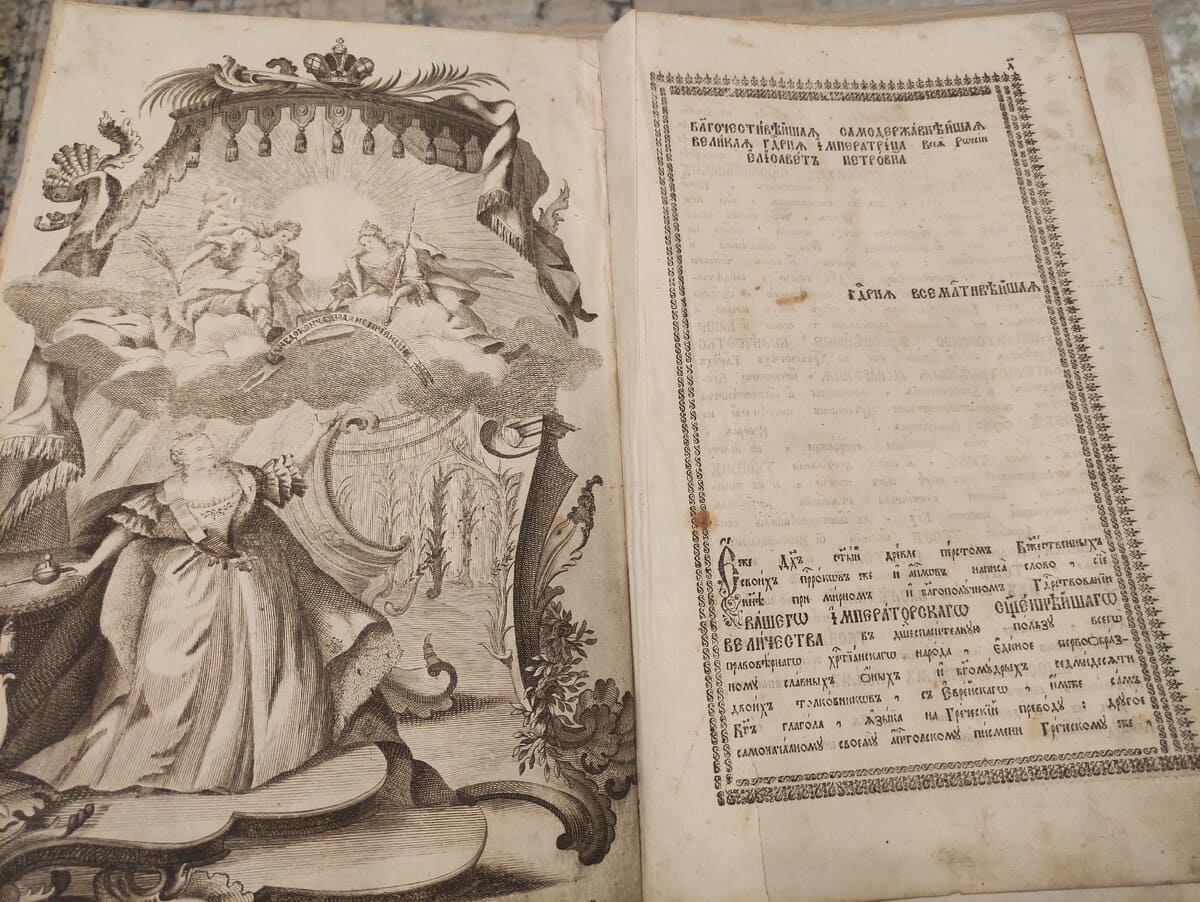 НЕОКОНЧАЕМАЯ И ЕДИНА
БЛ҃ГОЧЕСТИ́ВѢЙШАЯ САМОДЕРЖА́ВНѢЙШАЯ
ВЕЛИКАЯ ГДⷭ҇РНЯ І҆МПЕРАТРИ́ЦА ВСЕЯ РѠССІИ
ЕЛІСАВЕТЪ ПЕТРО́ВНА
ГДⷭ҇РНЯ ВСЕМЛⷭ҇ТИВѢ́ЙШАЯ
Е҆́же Дх҃ъ ст҃ы́й дре́вле пе́рстомъ Бж҃е́ственныхъ
свои́хъ прⷪ҇ро́кѡвъ же и҆ а҆пⷭ҇лѡвъ написа сло́во , сіѐ
ны́нѣ при ми́рномъ и҆ бл҃гополу́чномъ Гдⷭ҇рствованіи
ВА́ШЕГѠ І҆МПЕРА́ТОРСКАГѠ СЩ҃Е́ННѢЙШАГѠ
ВЕЛИ́ЧЕСТВА въ дш҃еспаси́тельную по́льзу всегѡ̀
правовѣ́рнаго хрⷭ҇тїа́нскагѡ наро́да , є҆ди́ное первоѻбра́з-
ному сла́вныхъ ѻ҆́ныхъ и҆ бг҃ому́дрыхъ седми́десѧти
двои́хъ толко́вникѡвъ , съ Е҆вре́йскагѡ , и҆́мже са́мъ
Бг҃ъ глаго́ла , ꙗ҆зы́ка на Гре́ческїй прево́ду : друго́е
самонача́лному своемꙋ̀ а҆пⷭ҇толскому пи́смени Гре́ческому же ,